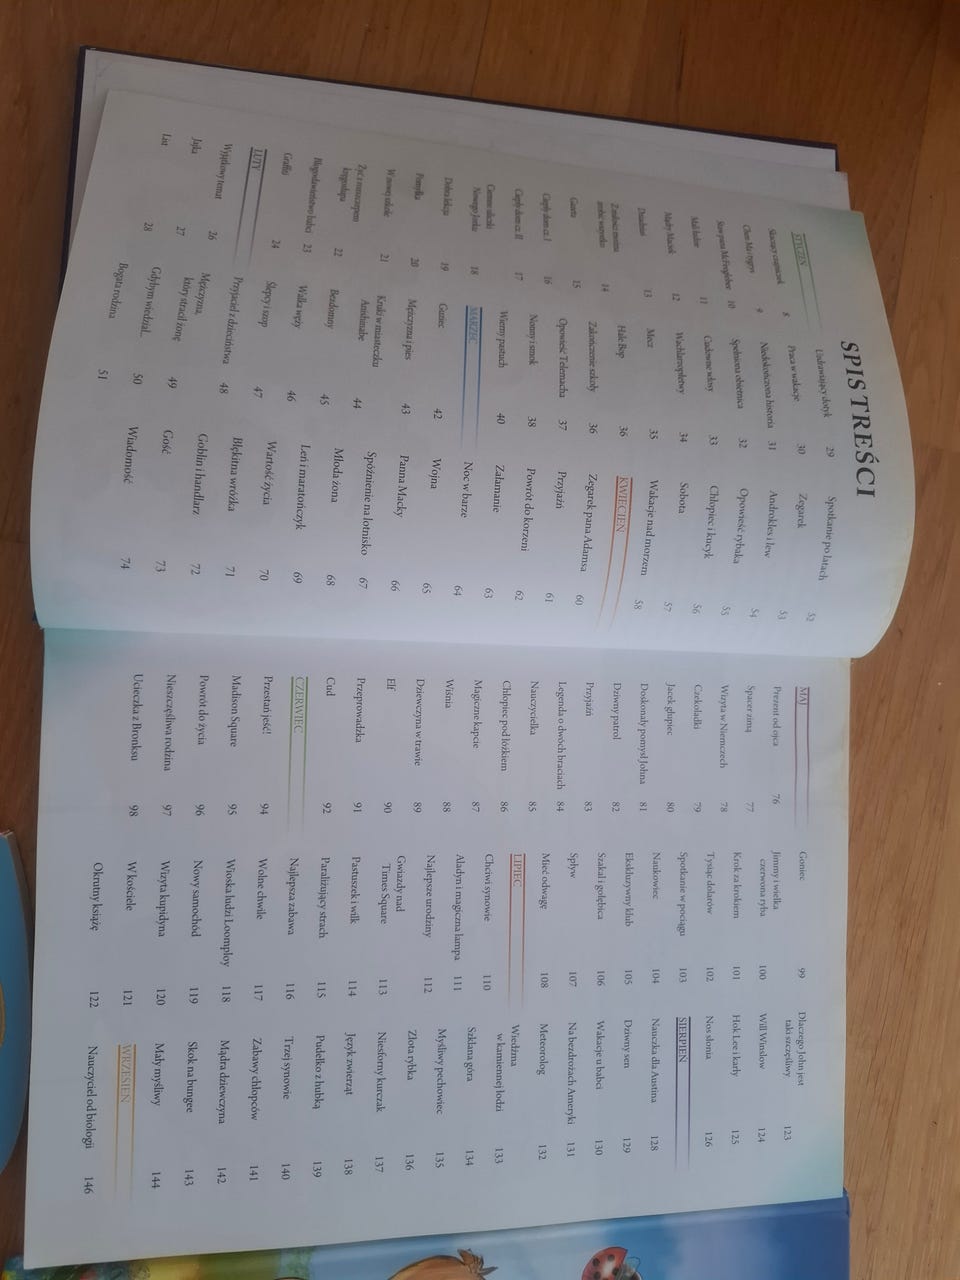 SPIS TREŚCI
STYCZEŃ
Skaczący czajniczek 8
Chen Ma i tygrys 9
Staw pana 10
Mali ludzie 11
Mądry Maciek 12
13
Z miłości można
zrobić wszystko 14
Gazeta 15
Ciepły dom cz. I 16
Ciepły dom cz. II 17
Ciemne uliczki
Nowego Jorku 18
Dobra lekcja 19
Pomyłka 20
W nowej szkole 21
Żyć z rozszczepem
kręgosłupa 22
Błogosławieństwo babci 23
Graffiti 24
LUTY
Wyjątkowy temat 26
Jajka 27
List 28
Uzdrawiający dotyk 29
Praca w wakacje 30
Niedokończona historia 31
Spełniona obietnica 32
Cudowne włosy 33
Wachlarzopłetwy 34
Mecz 35
Hale Bop 36
Zakończenie szkoły 36
Opowieść Telemacha 37
Nonny i smok 38
Wierny pastuch 40
MARZEC
Goniec 42
Mężczyzna i pies 43
Kruki w miasteczku
Anishinabe 44
Bezdomny 45
Walka węży 46
Ślepcy i szop 47
Przyjaciel z dzieciństwa 48
Mężczyzna,
który stracił żonę 49
Gdybym wiedział... 50
Bogata rodzina 51
Spotkanie po latach 52
Zegarek 53
Androkles i lew 54
Opowieść rybaka 55
Chłopiec i kucyk 56
Sobota 57
Wakacje nad morzem 58
KWIECIEŃ
Zegarek pana Adamsa 60
Przyjaźń 61
Powrót do korzeni 62
Załamanie 63
Noc w barze 64
Wojna 65
Panna Macky 66
Spóźnienie na lotnisko 67
Młoda żona 68
Leń i maratończyk 69
Wartość życia 70
Błękitna wróżka 71
Goblin i handlarz 72
Gość 73
Wiadomość 74
MAJ
Prezent od ojca 76
Spacer zimą 77
Wizyta w Niemczech 78
Czekoladki 79
Jacek głupiec 80
Doskonały pomysł Johna 81
Dziwny patrol 82
Przyjaźń 83
Legenda o dwóch braciach 84
Nauczycielka 85
Chłopiec pod łóżkiem 86
Magiczne kapcie 87
Wiśnia 88
Dziewczyna w trawie 89
Elf 90
Przeprowadzka 91
Cud 92
CZERWIEC
Przestań jeść! 94
Madison Square 95
Powrót do życia 96
Nieszczęśliwa rodzina 97
Ucieczka z Bronksu 98
Goniec 99
Jimmy i wielka
czerwona ryba 100
Krok za krokiem 101
Tysiąc dolarów 102
Spotkanie w pociągu 103
Naukowiec 104
Ekskluzywny klub 105
Szakal i gołębica 106
Spływ 107
Mieć odwagę 108
LIPIEC
Chciwi synowie 110
Aladyn i magiczna lampa 111
Najlepsze urodziny 112
Gwiazdy nad
Times Square 113
Pastuszek i wilk 114
Paraliżujący strach 115
Najlepsza zabawa 116
Wolne chwile 117
Wioska ludzi Loomploy 118
Nowy samochód 119
Wizyta kupidyna 120
W kościele 121
Okrutny książę 122
Dlaczego John jest
taki szczęśliwy 123
Will Winslow 124
Hok Lee i karły 125
Nos słonia 126
SIERPIEŃ
Nauczka dla Austina 128
Dziwny sen 129
Wakacje u babci 130
Na bezdrożach Ameryki 131
Meteorolog 132
Wiedźma
w kamiennej łodzi 133
Szklana góra 134
Myśliwy pechowiec 135
Złota rybka 136
Niesforny kurczak 137
Język zwierząt 138
Pudełko z hubką 139
Trzej synowie 140
Zabawy chłopców 141
Mądra dziewczyna 142
Skok na bungee 143
Mały myśliwy 144
WRZESIEŃ
Nauczyciel od biologii 146